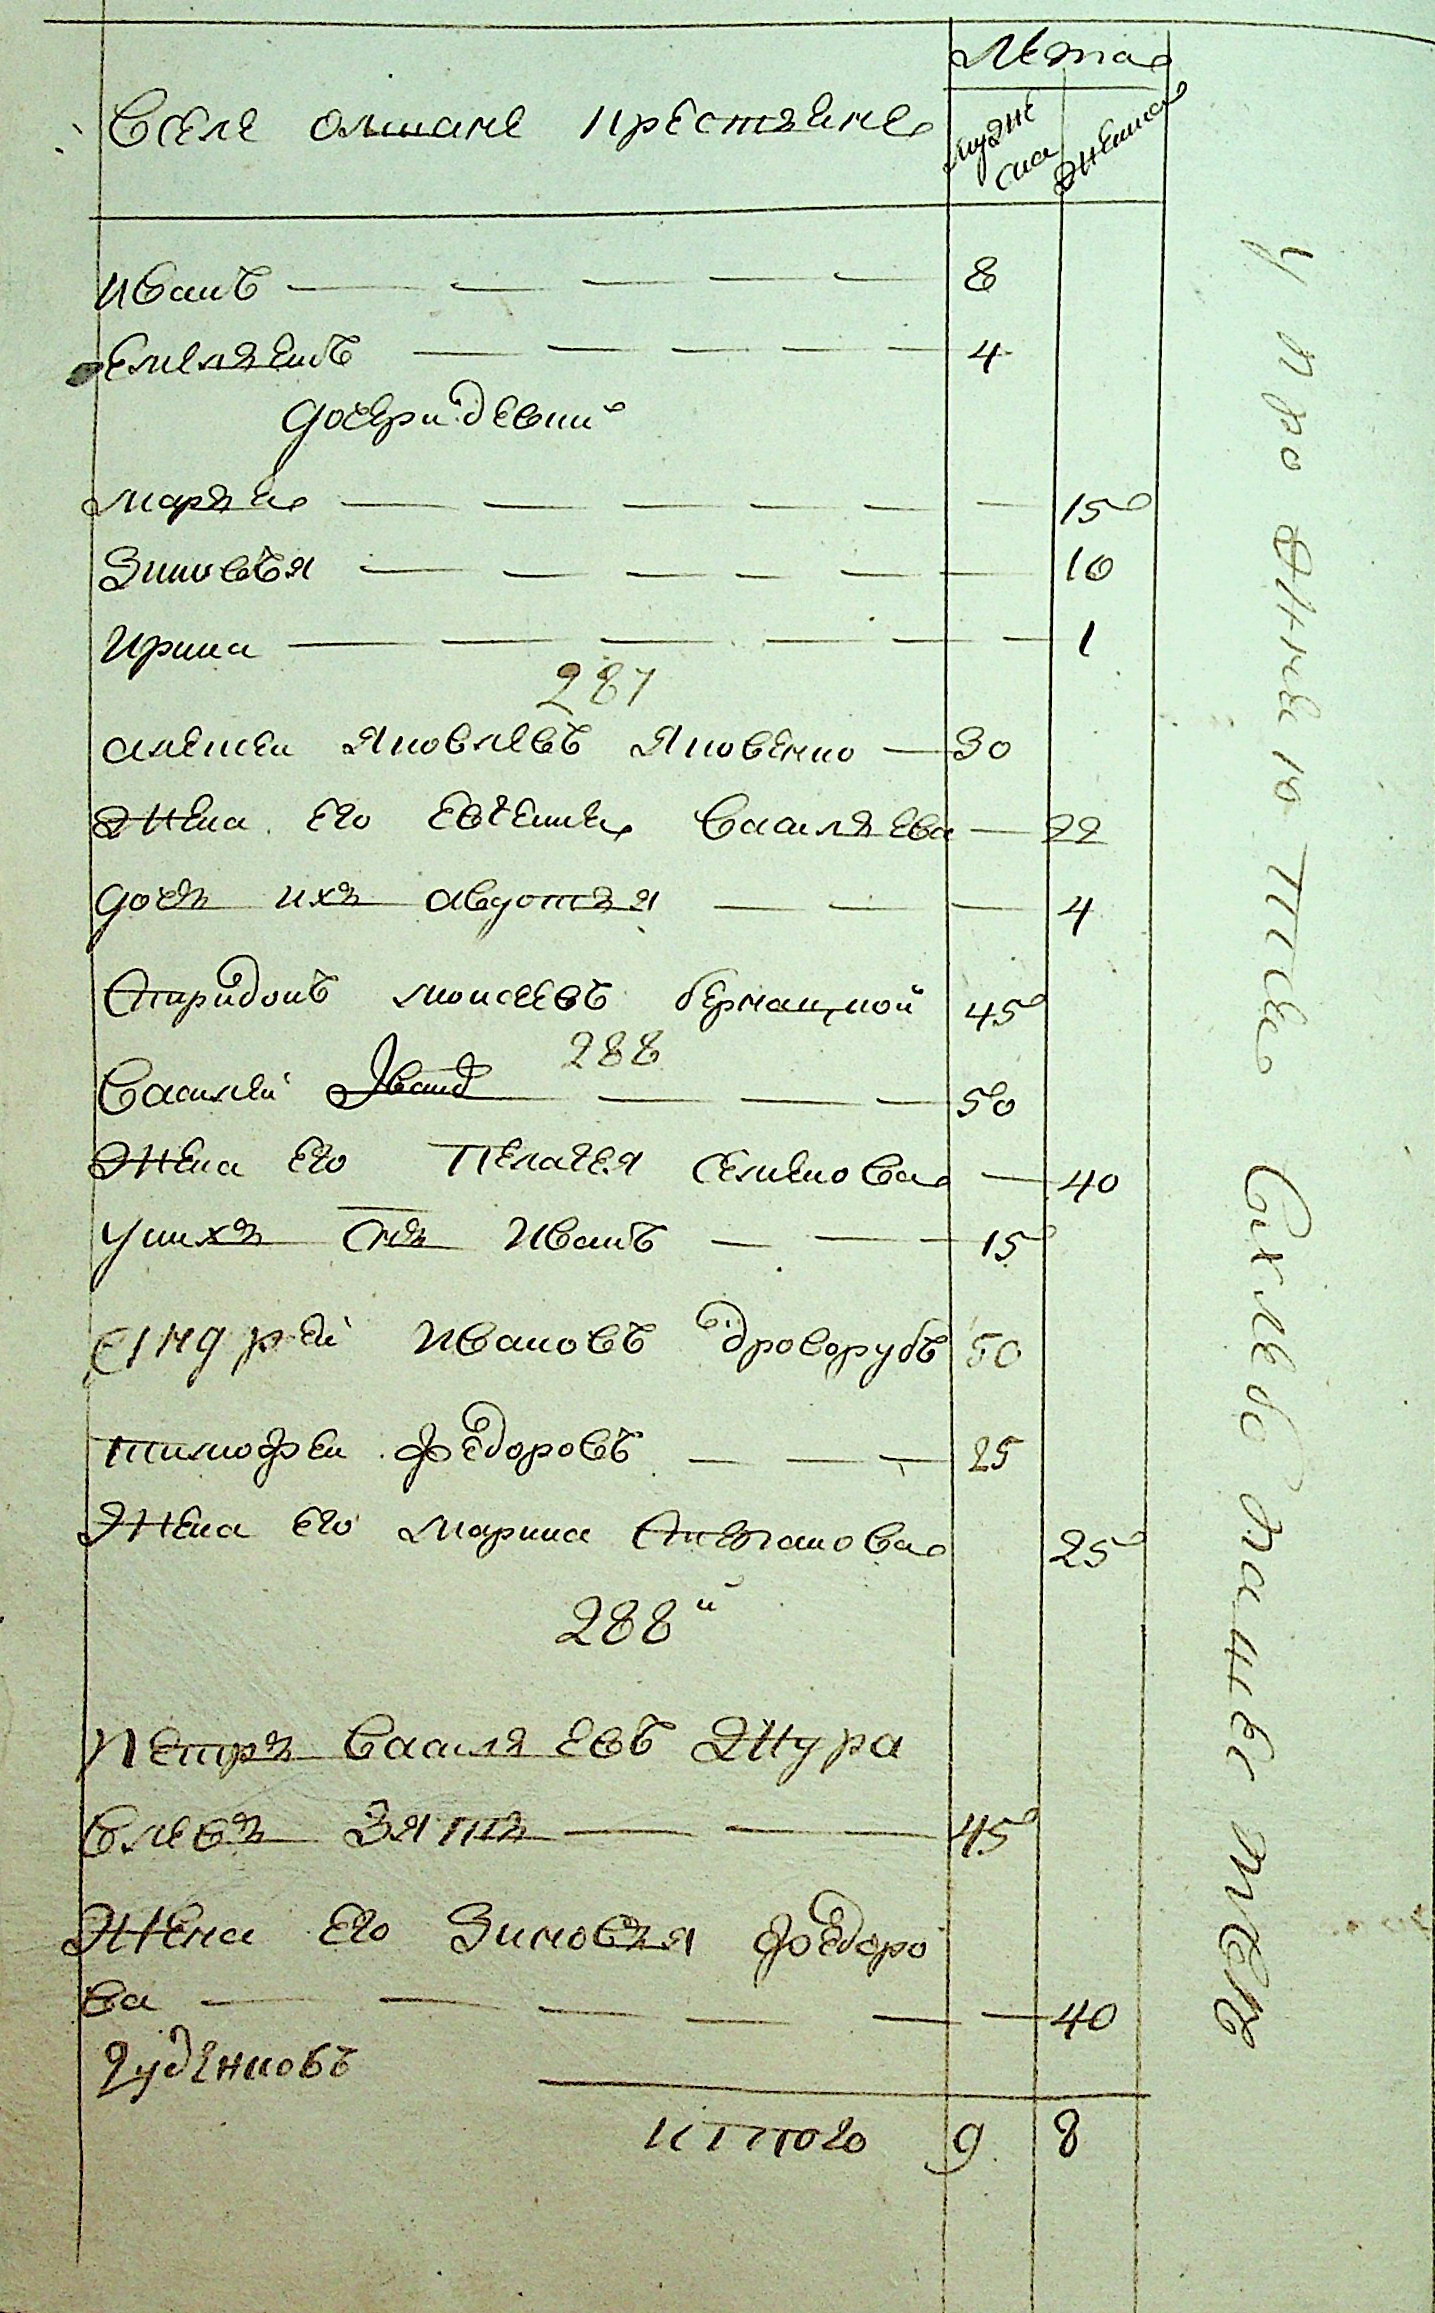 Лета
Вселе олшане крестяне
муже
ска
женска
иванъ 8
емелянъ 4
дочери девки
маряна 15
Зиновъя 10
Ирина 1
287
алексеи яковлевъ яковенко 30
жена его евгения василяева 22
дочь ихъ авдотья 4
Спиридонъ моисеевъ бернацкой 45
288
Василей Іванъ 50
жена его Пелагея семенова 40
у нихъ Снъ Иванъ 15
андрей ивановъ дроворубъ 50
тимофеи федоровъ 25
жена его марина Степанова 25
288й
петръ василя евъ жура
влевъ зять 45
жена его Зиновья федоро
ва 40
гуденковъ
итого 9 8